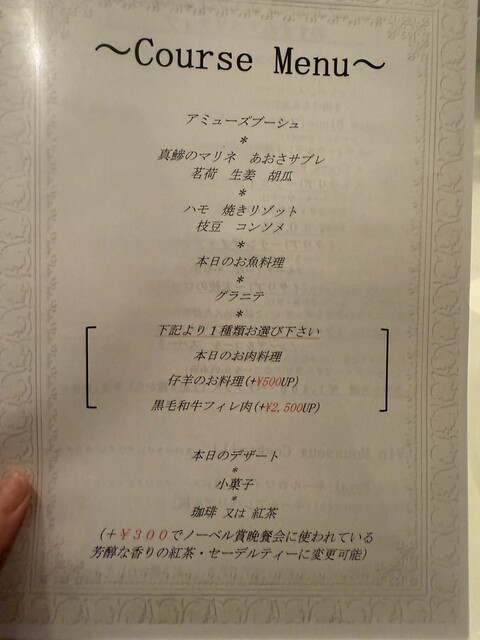 ～Course Menu～
アミューズブーシュ
*
真鯵のマリネ　あおさサブレ
茗荷　生姜　胡瓜
*
ハモ　焼きリゾット
枝豆　コンソメ
*
本日のお魚料理
*
グラニテ
*
下記より１種類お選び下さい
本日のお肉料理
仔羊のお料理(+¥500UP)
黒毛和牛フィレ肉(+¥2,500UP)
本日のデザート
*
小菓子
*
珈琲 又は 紅茶
(＋￥３００でノーベル賞晩餐会に使われている
芳醇な香りの紅茶・セーデルティーに変更可能)